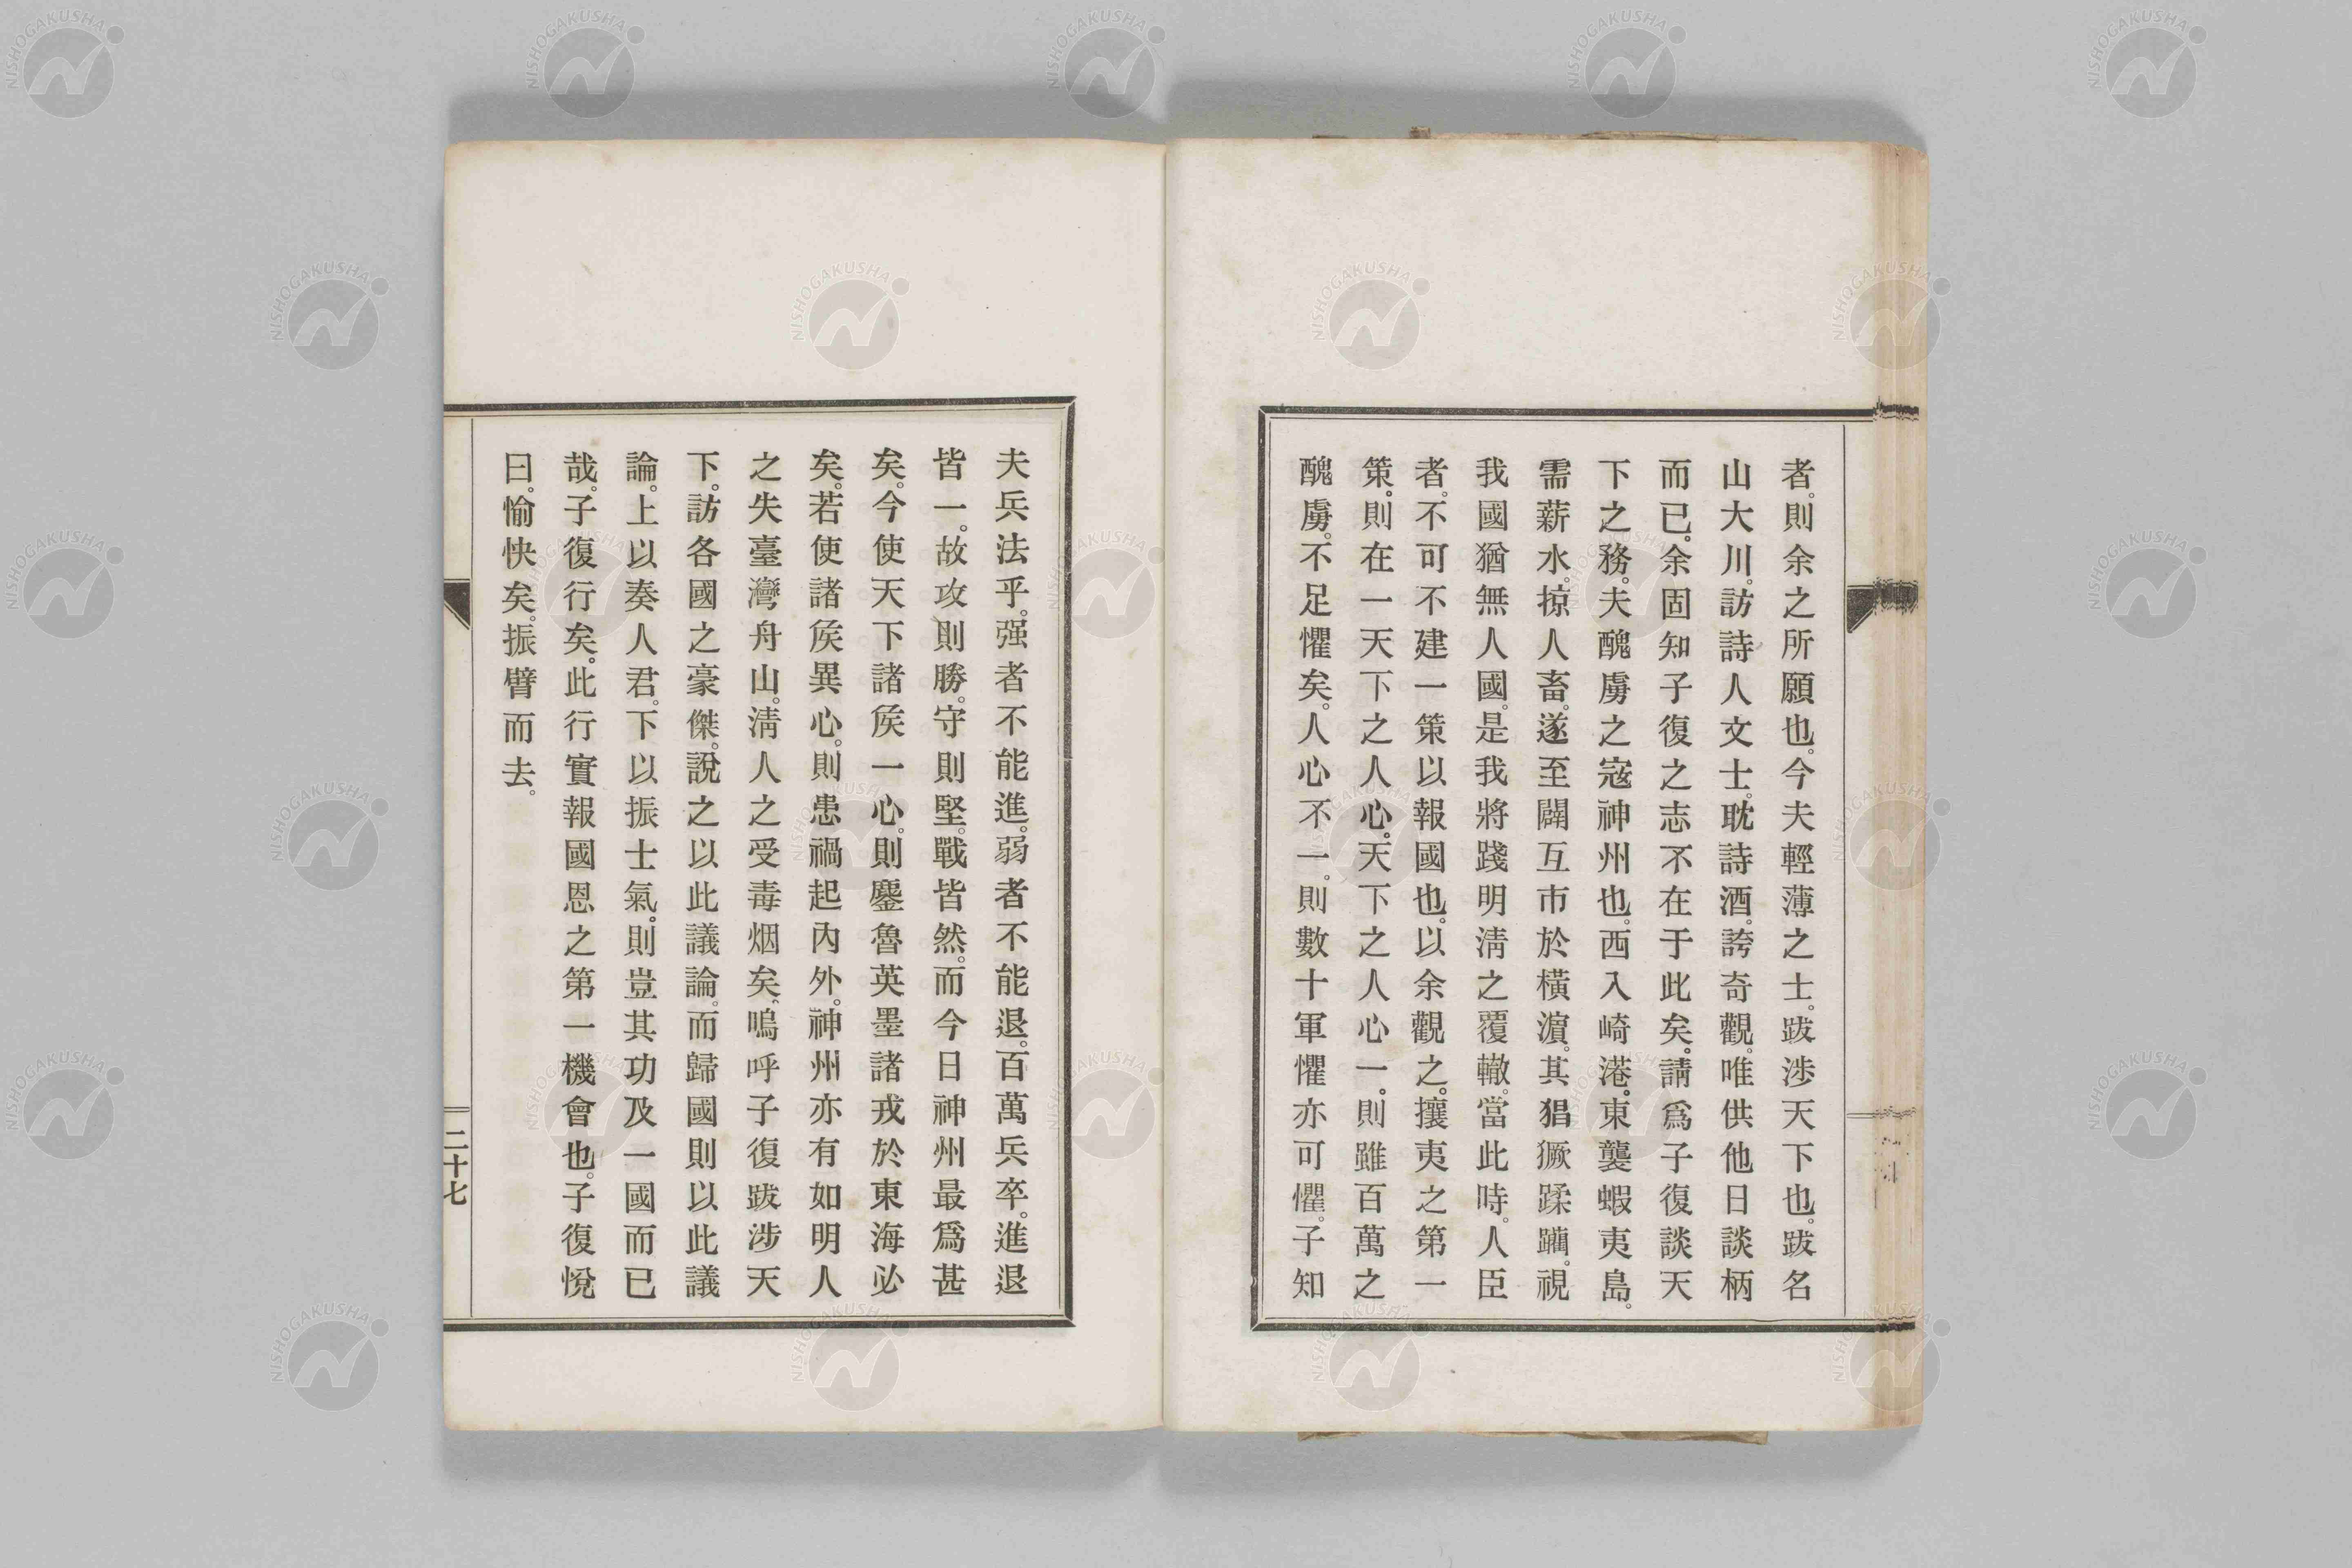 者。則余之所願也。今夫輕薄之士。跋渉天下也。跋名
山大川。訪詩人文士。耽詩酒。誇奇觀。唯供他日談柄
而已。余固知子復之志不在于此矣。請爲子復談天
下之務。夫醜虜之寇神州也。西入崎港。東襲蝦夷島。
需薪水。掠人畜。遂至闢互市於橫濵。其猖獗蹂躪。視
我國猶無人國。是我將踐明淸之覆轍。當此時。人臣
者。不可不建一策以報國也。以余觀之。攘夷之第一
策。則在一天下之人心。天下之人心一。則雖百萬之
醜虜。不足懼矣。人心不一。則數十軍懼亦可懼。子知
夫兵法乎。强者不能進。弱者不能退。百萬兵卒。進退
皆一。故攻則勝。守則堅。戰皆然。而今日神州最爲甚
矣。今使天下諸矦一心。則鏖魯英墨諸戎於東海必
矣。若使諸矦異心。則患禍起內外。神州亦有如明人
之失臺灣舟山。淸人之受毒烟矣。嗚呼子復跋涉天
下。訪各國之豪傑。說之以此議論。而歸國則以此議
論。上以奏人君。下以振士氣。則豈其功及一國而已
哉。子復行矣。此行實報國恩之第一機會也。子復悅
曰。愉快矣。振臂而去。
二十七
NISHOGAKUSHA